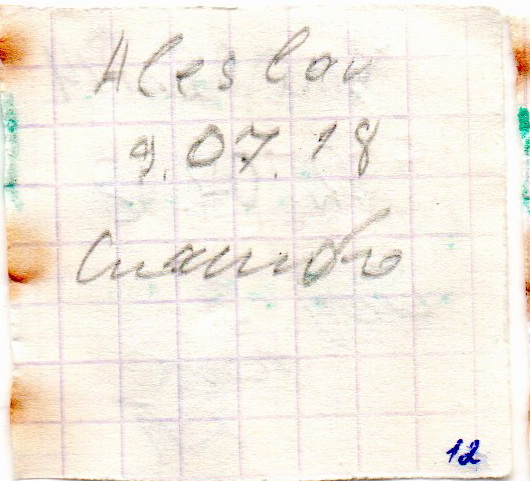 9.07.18
Спасибо
12